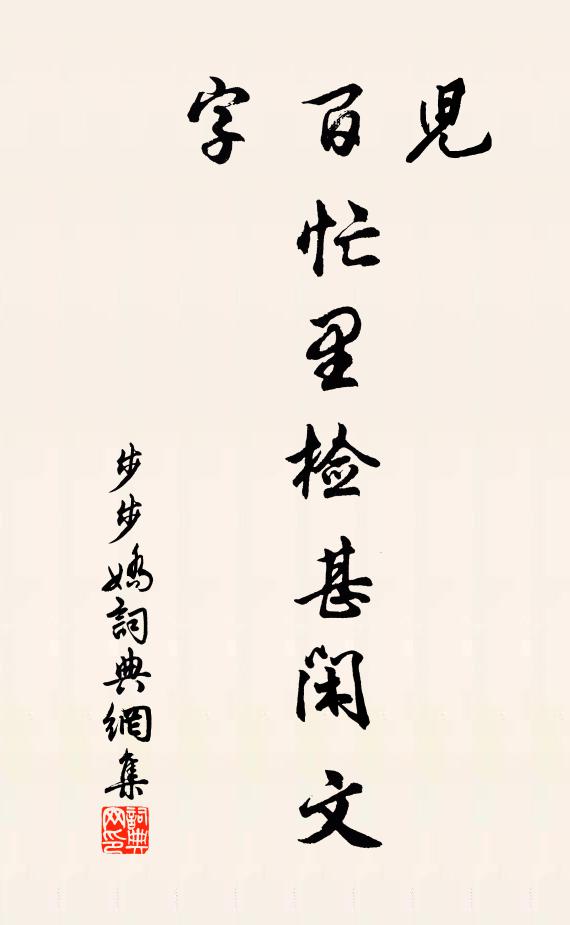 児
百忙里检甚閑文
字
步步嬌詞典網集
詞典
网印